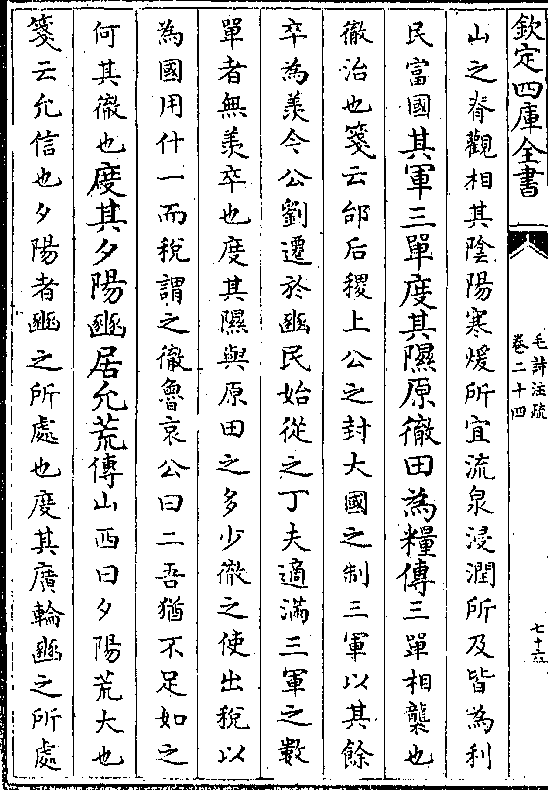 欽定四庫全書
毛詩注疏
卷二十四
七十六
山之脊觀相其陰陽寒煖所宜流泉浸潤所及皆為利
民富國其軍三單度其隰原徹田為糧傳三單相襲也
徹治也箋云邰后稷上公之封大國之制三軍以其餘
卒為羨今公劉遷於豳民始從之丁夫適滿三軍之數
單者無羨卒也度其隰與原田之多少徹之使出稅以
為國用什一而稅謂之徹魯哀公曰二吾猶不足如之
何其徹也度其夕陽豳居允荒傳山西曰夕陽荒大也
箋云允信也夕陽者豳之所處也度其廣輪豳之所處